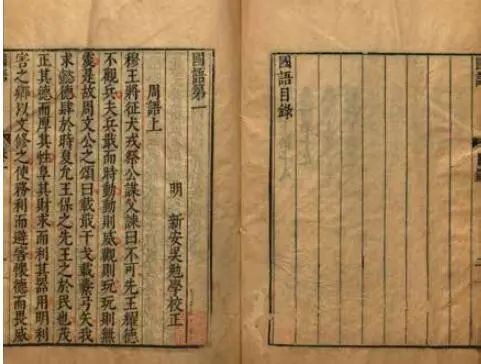 國語
國語目錄
國語第一
明 新安吳勉學校正
周語上
穆王將征犬戎祭公謀父諫曰不可先王耀德
不觀兵夫兵戢而時動動則威觀則玩玩則無
震是故周文公之頌曰載戢干戈載櫜弓矢我
求懿德肆於時夏允王保之先王之於民也茂
正其德而厚其性阜其財求而利其器用明利
害之鄉以文修之使務利而避害懷德而畏威